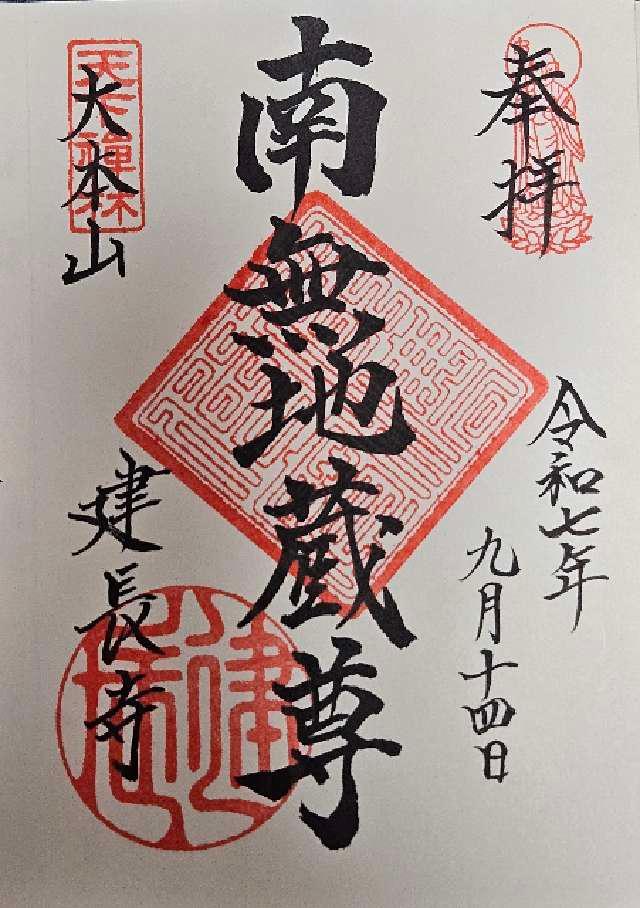 奉拝
令和七年
九月十四日
南無地蔵尊
大本山
建長寺